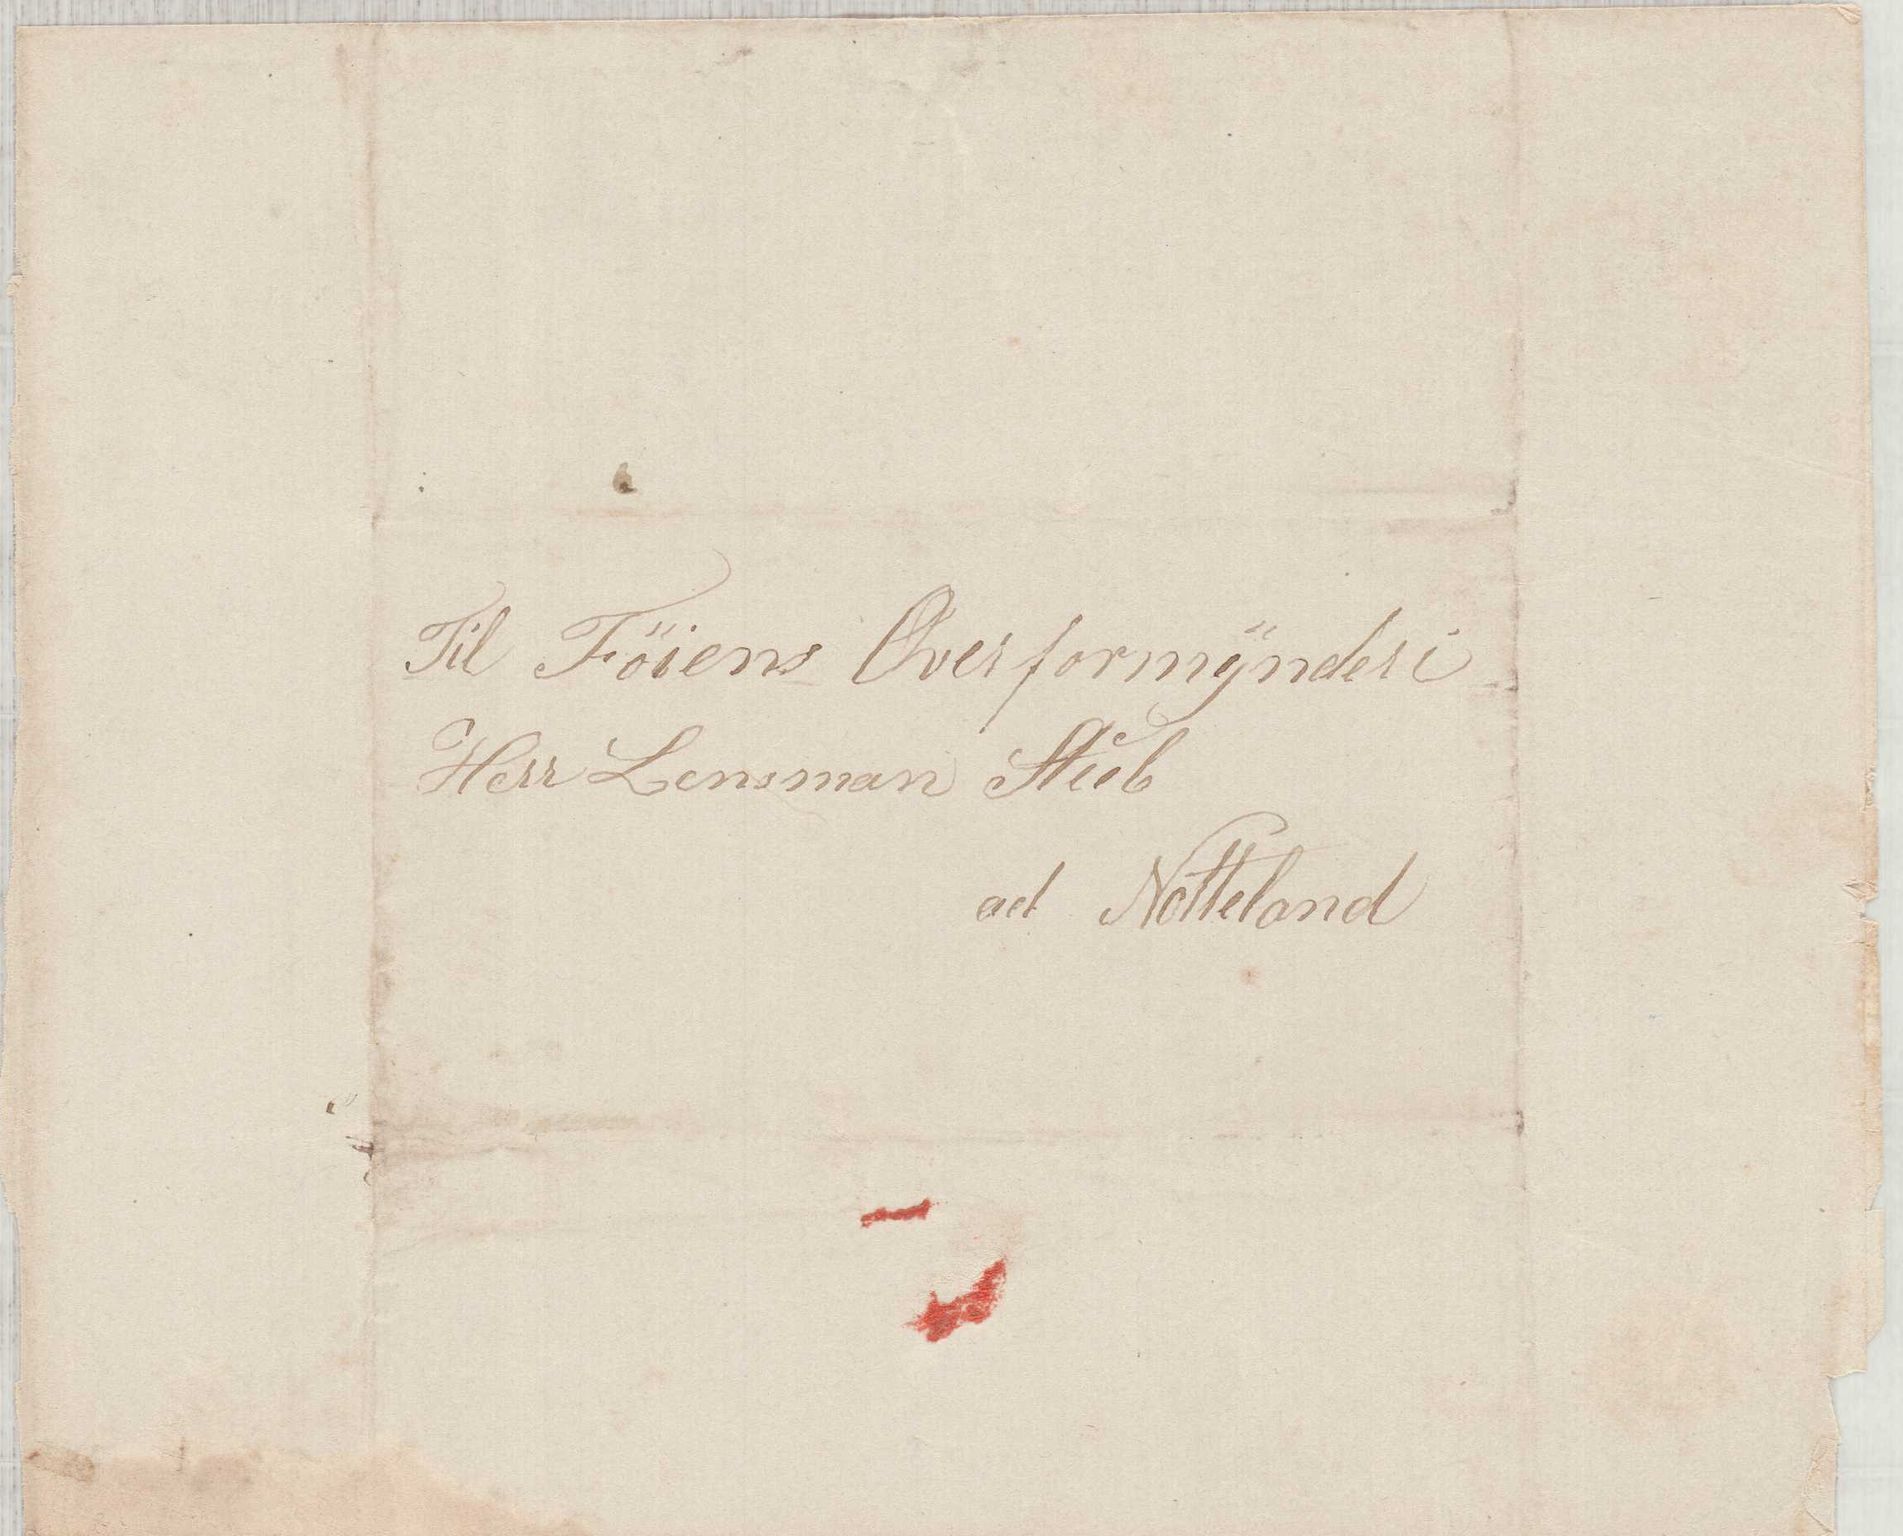 Til Föiens Overformÿnderi
Herr Lensman Stub
ad Notteland